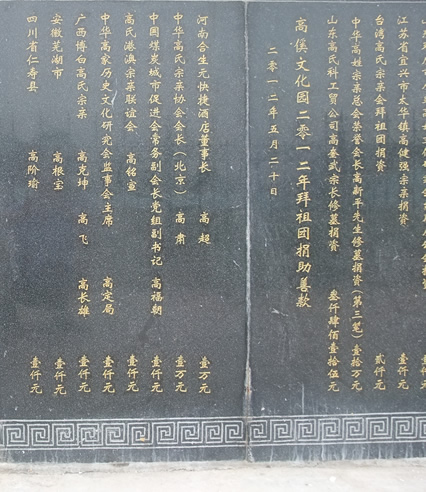 江苏省宜兴市太华镇高健强宗亲捐资 壹仟元
台湾高氏宗亲会拜祖团捐资 贰仟元
中华高姓宗亲总会荣誉会长高新平先生修墓捐资(第三笔)壹拾万元
山东高氏科工贸公司高登武宗长修墓捐资 叁仟肆佰壹拾伍元
高傒文化园二零一二年拜祖团捐助善款
二零一二年五月二十日
河南合生元快捷酒店董事长 高超 壹万元
中华高氏宗亲协会会长(北京) 高肃 壹万元
中国煤炭城市促进会常务副会长党组副书记 高福朝 壹仟元
高氏港澳宗亲联谊会 高铭宣 壹仟元
中华高家历史文化研究会监事会主席 高定局 壹仟元
广西博白高氏宗亲 高克坤 高飞 高长雄 壹仟元
安徽芜湖市 高根宝 壹仟元
四川省仁寿县 高阶瑜 壹仟元